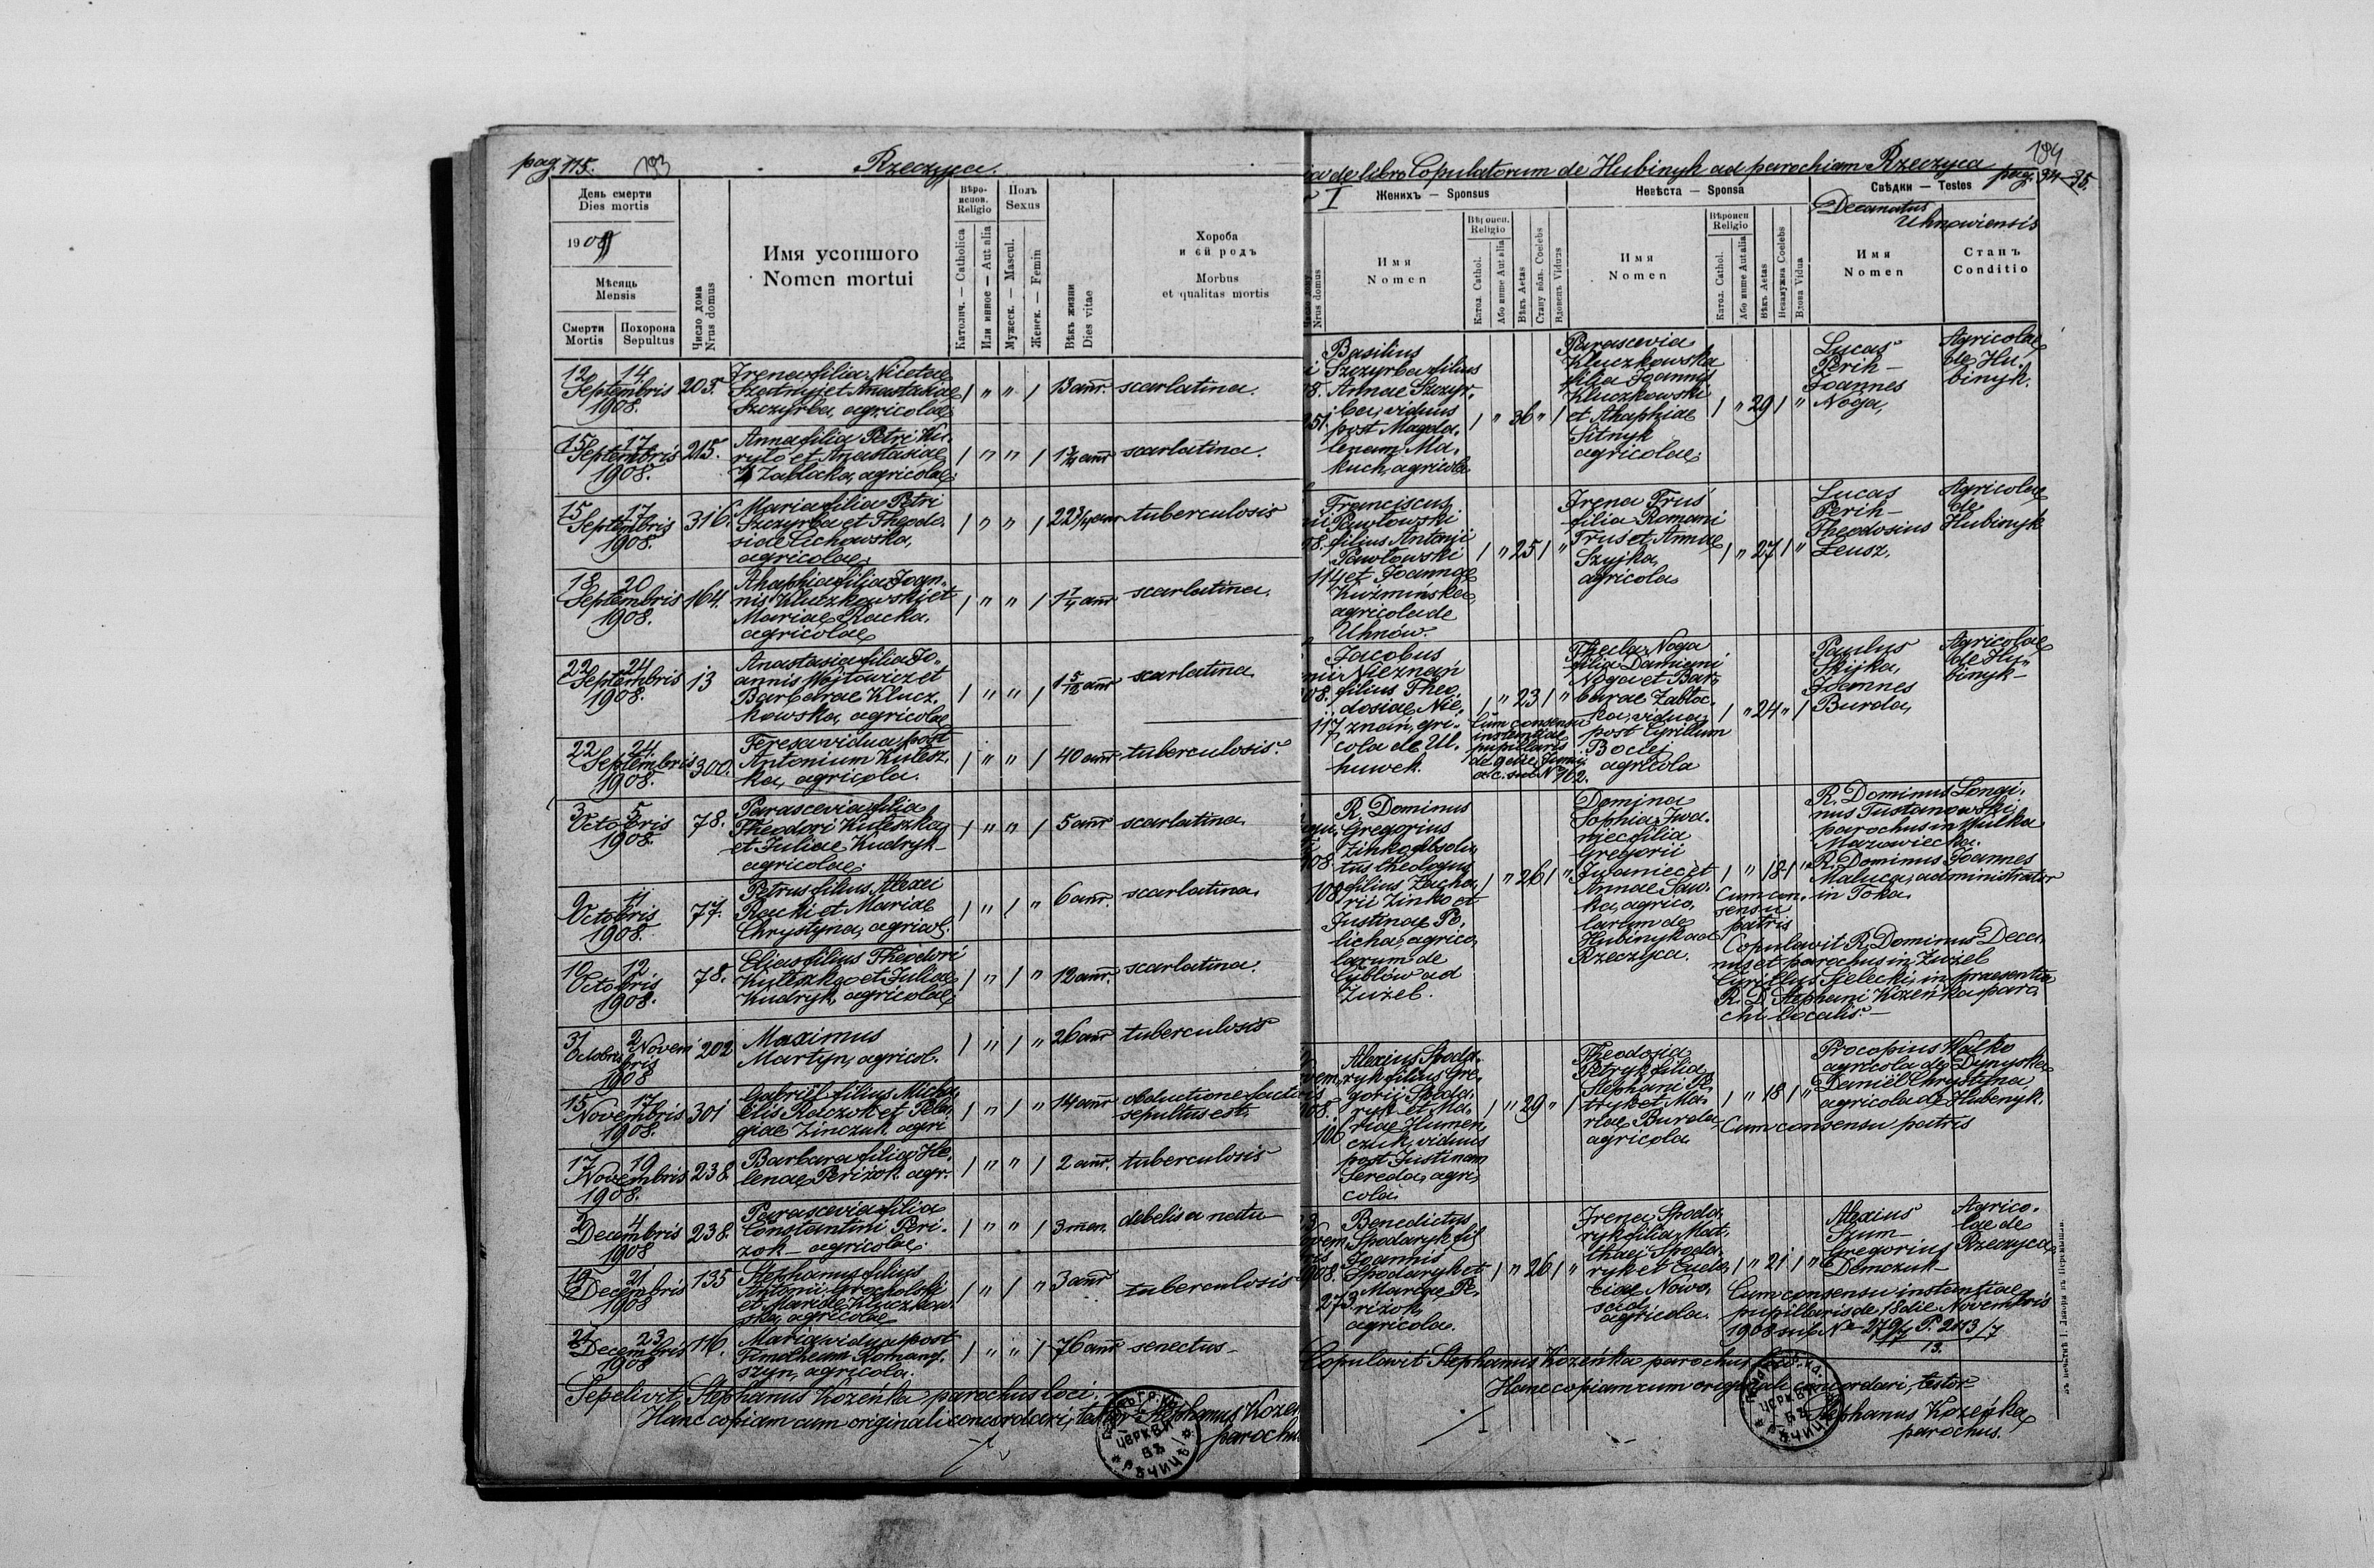 pag. 115. 193 Rzeczyca.
День смерти
Dies mortis
1908
Мѣсяць
Mensis
Смерти
Mortis
Похорона
Sepultus
Число дома
Nrus domus
Имя усопшого
Nomen mortui
Вѣро-
испов.
Religio
Католич. — Catholica
Или инное — Aut alia
Полъ
Sexus
Мужеск. — Mascul.
Женск. — Femin
Вѣкъ жизни
Dies vitae
Хороба
и єй родъ
Morbus
et qualitas mortis
12 14
Septembris
1908.
203.
Irena filia Nicetae
Szatnyj et Anastasiae
Szczyrba, agricolae
1 " " 1 13 ann. scarlatina.
15 17
Septembris
1908.
215.
Anna filia Petri Ku-
ryło et Anastasiae
Zabłocka, agricolae
1 " " 1 scarlatina.
15 17
Septembris
1908.
316.
Maria filia Petri
Szczyrba et Theodo-
siae Lichowska,
agricolae
1 " " 1 22 3/4 ann tuberculosis
18 20
Septembris
1908.
164.
Ahaphia filia Joan-
nis Kluczkowski et
Mariae Racka,
agricolae
1 " " 1 scarlatina.
22 24
Septembris
1908.
13
Anastasia filia Jo-
annis Wojtowicz et
Barbarae Klucz-
kowska, agricolae
1 " " 1 1 5/12 ann scarlatina
22 24
Septembris
1908.
300.
Teresa vidua post
Antonium Kulesz-
ka, agricola.
1 " " 1 40 ann tuberculosis.
3 5
Octobris
1908.
78.
Parascevia filia
Theodori Kuleszka
et Juliae Kudryk
agricolae
1 " " 1 5 ann scarlatina.
9 11
Octobris
1908.
77.
Petrus filius Alexei
Racki et Mariae
Chrystyna, agricol.
1 " 1 " 6 ann. scarlatina.
10 12
Octobris
1908.
78.
Elias filius Theodori
Kuleszka et Juliae
Kudryk, agricolae
1 " 1 " 12 ann. scarlatina.
31 2 Novem
Octobris bris
1908
202
Maximus
Martyn, agricol.
1 " 1 " 26 ann tuberculosis
15 17
Novembris
1908.
301
Gabriël filius Micha-
ëlis Raczok et Pela-
giae Zinczuk agri
1 " 1 " 14 ann obductione facta
sepultus est
17 19
Novembris
1908.
238.
Barbara filia He-
lenae Perizok agr.
1 " " 1 2 ann. tuberculosis
2 4
Decembris
1908
238.
Parascevia filia
Constantini Peri-
zok agricolae
1 " " 1 3 men. debelis a natu
19 21
Decembris
1908
135
Stephanus filius
Antonii Grocholski
et Mariae Kluczkow-
ska, agricolae
1 " 1 " 3 ann tuberculosis
21 23
Decembris
1908
116.
Maria vidua post
Timotheum Romany-
szyn, agricola.
1 " " 1 76 ann senectus
Sepelivit Stephanus Kozeńka parochus loci.
Hanc copiam cum originali concordari, testor Stephanus Kozeń
parochu
ЦЕРКВИ
ВЪ
РѢЧИЦѢ
ia de libro Copulatorum de Hubinyk ad parochiam Rzeczyca
194
pag. 34-35.
I
Decanatus
Uhnowiensis
Nrus domus
Женихъ — Sponsus
Имя
Nomen
Вѣроисп.
Religio
Катол. Cathol.
Або инше Aut alia
Вѣкъ Aetas
Стану вôльн. Coelebs
Вдовецъ Viduus
Невѣста — Sponsa
Имя
Nomen
Вѣроисп
Religio
Катол. Cathol.
Або инше Aut alia
Вѣкъ Aetas
Незамужна Coelebs
Вдова Vidua
Свѣдки — Testes
Имя
Nomen
Станъ
Conditio
Basilius
Szczyrba filius
Annae Szczyr-
ba, viduus
post Magda-
lenam Ma-
kuch, agricola
1 " 36 " 1
Parascevia
Kluczkowska
filia Joannis
Kluczkowski
et Ahaphiae
Sitnyk
agricolae
1 " 29 1 "
Lucas
Perih
Joannes
Noga,
Agricolae
de Hu-
binyk.
Franciscus
Pawłowski
filius Antonii
Pawłowski
114 et Joannae
Kuźmińska
agricola de
Uhnów.
1 " 25 1 "
Irena Truś
filia Romani
Truś et Annae
Szyjka,
agricola
1 " 27 1 "
Lucas
Perih
Theodosius
Łeusz,
Agricolae
de
Hubinyk
Jacobus
Nieznań
filius Theo-
dosiae Nie-
znań, gri-
cola de Ul-
huwek.
117
1 " 23 1 "
Cum consensu
instantiae
pupillaris
Thecla Noga
filia Damiani
Noga et Bar-
barae Zabło-
cka, vidua
post Cyrillum
Bociej
agricola
1 " 24 " 1
Paulus
Szyjka,
Joannes
Burda,
Agricolae
de Hu-
binyk
R. Dominus
Gregorius
Zinko absolu-
tus theologus
109 filius Zacha-
rii Zinko et
Justinae Po-
licha, agrico-
larum de
Cebłów ad
Żużel.
1 " 26 1 "
Domina
Sophia Iwa-
niec filia
Gregorii
Iwaniec et
Annae Saw-
ka, agrico-
larum de
Hubinyk ad
Rzeczyca.
1 " 18 1 "
Cum con-
sensu
patris
R. Dominus Longi-
nus Tustanowski
parochus in Wulka
Mazowiecka.
R. Dominus Joannes
Maluca, administrator
in Toka.
Copulavit R. Dominus Deca-
nus et parochus in Żużel
Cyrillus Sielecki, in praesentia
R. D. Stephani Kozeńka paro-
chi localis.
Alexius Spoda-
ryk filius Gre-
gorii Spoda-
ryk et Ma-
riae Humen-
czuk, viduus
post Justinam
Sereda, agri-
cola
106
1 " 29 " 1
Theodosia
Petryk filia
Stephani Pe-
tryk et Ma-
riae Burda,
agricola
1 " 18 1 "
Cum consensu patris
Procopius Walko
agricola de Dynyska
Daniël Chrystyna,
agricola de Hubenyk.
Benedictus
Spodaryk fil
Joannis
Spodaryk et
273 Mariae Pe-
rizok,
agricola.
1 " 26 1 "
Irena Spoda-
ryk filia Mat-
thaei Spoda-
ryk et Eudo-
ciae Nowo-
sad,
agricola.
1 " 21 1 "
Alexius
Szum
Gregorius
Demczuk
Agrico-
lae de
Rzeczyca
Cum consensu instantiae
pupillaris de 18 die Novembris
1908 sub No
Copulavit Stephanus Kozeńka parochus loci.
Hanc copiam cum originali concordari, testor
Stephanus Kozeńka
parochus.
ЦЕРКВИ
ВЪ
РѢЧИЦѢ